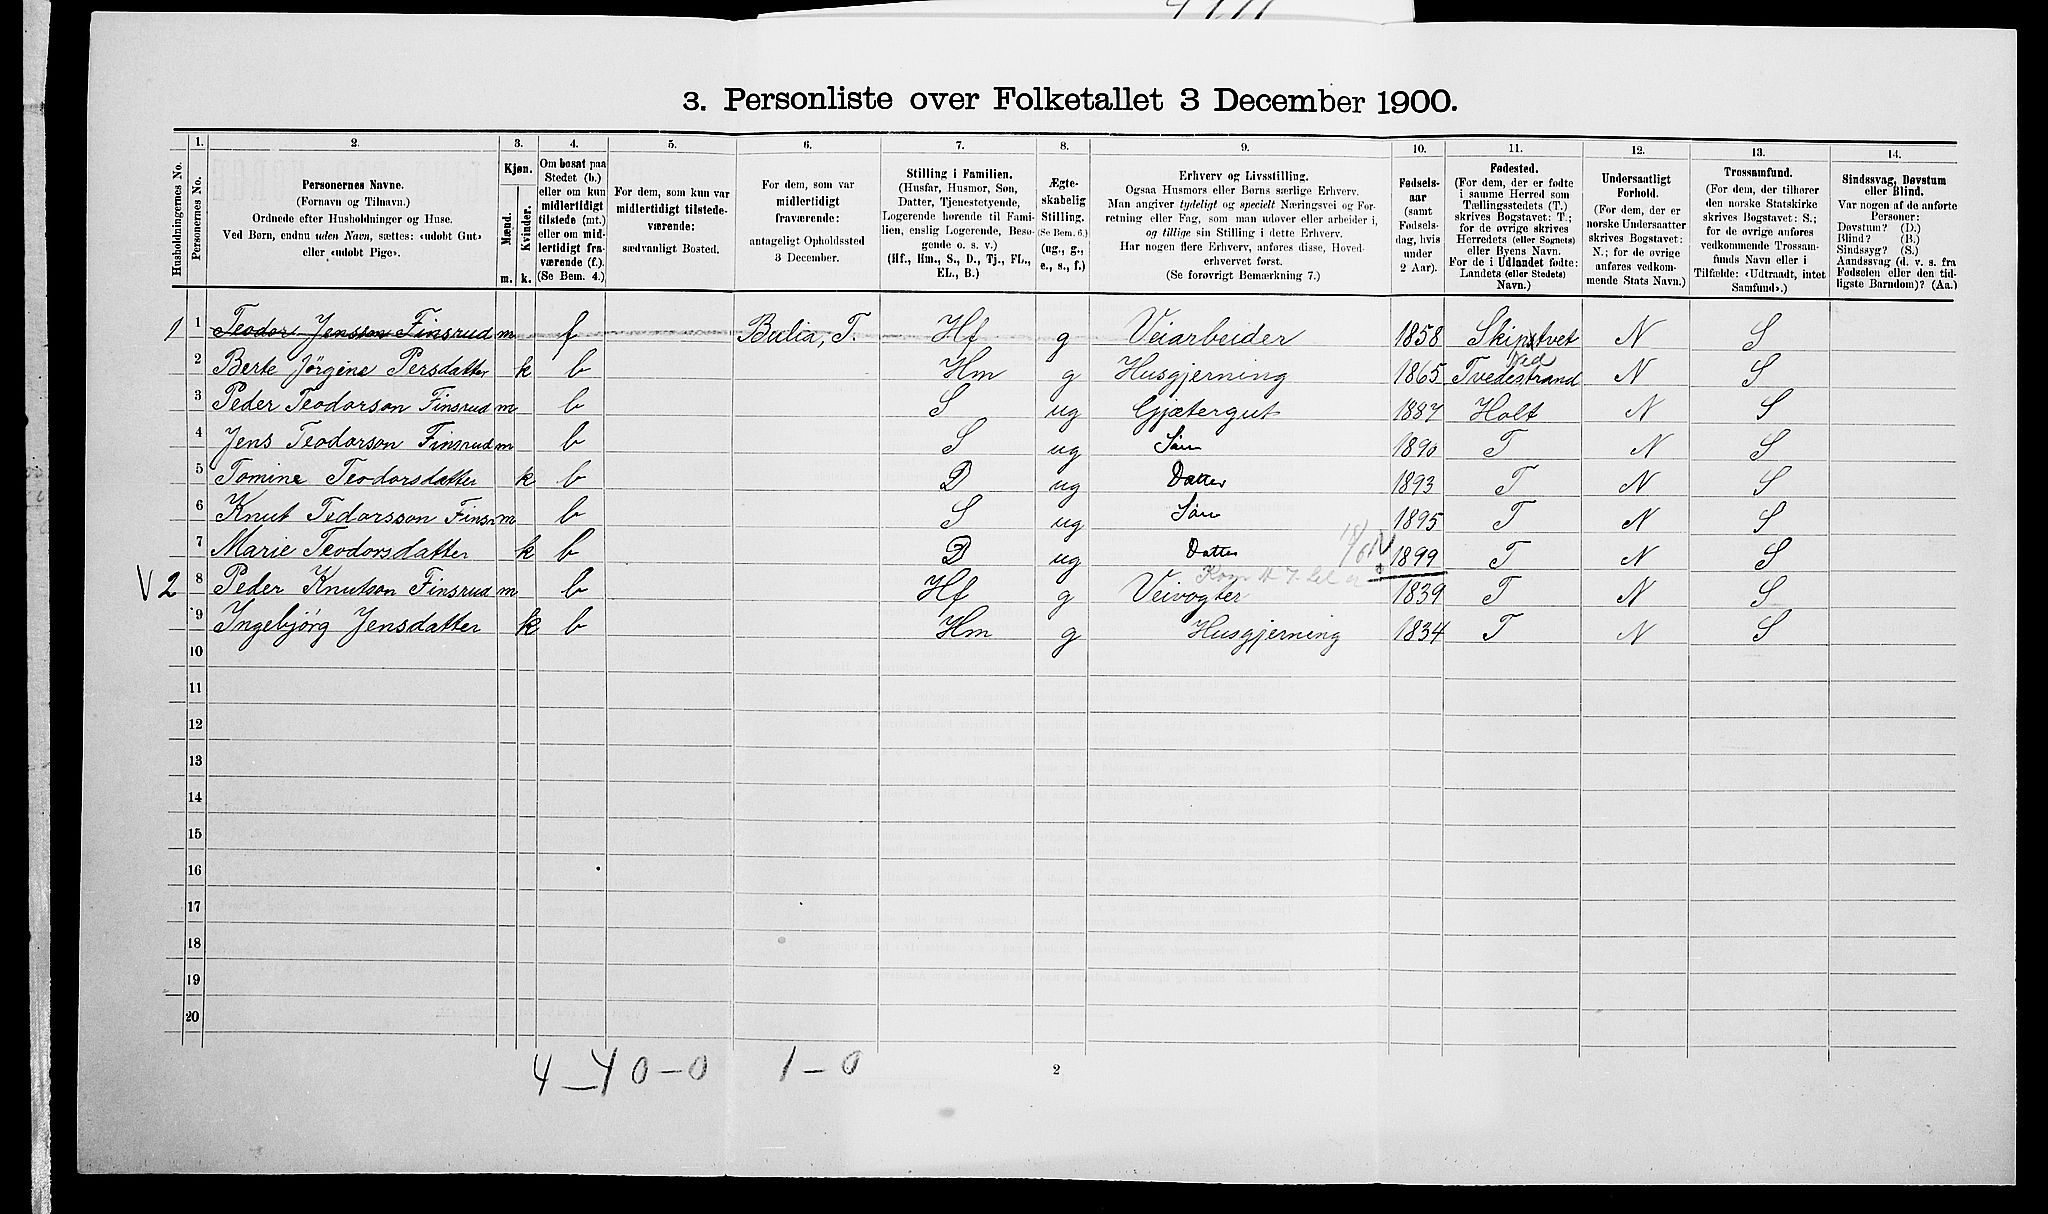 3. Personliste over Folketallet 3 December 1900.
1. 2. 3. 4. 5. 6. 7. 8. 9. 10. 11. 12. 13. 14.
Husholdningernes No.
Personernes No.
Personernes Navne.
(Fornavn og Tilnavn.)
Ordnede efter Husholdninger og Huse.
Ved Børn, endnu uden Navn, sættes: «udøbt Gut»
eller «udøbt Pige».
Kjøn.
Mænd.
Kvinder.
m. k.
Om bosat paa
Stedet (b.)
eller om kun
midlertidigt
tilstede (mt.)
eller om mid-
lertidigt fra-
værende (f.).
(Se Bem. 4.)
For dem, som kun var
midlertidigt tilstede-
værende:
sædvanligt Bosted.
For dem, som var
midlertidigt
fraværende:
antageligt Opholdssted
3 December.
Stilling i Familien.
(Husfar, Husmor, Søn,
Datter, Tjenestetyende,
Logerende hørende til Fami-
lien, enslig Logerende, Besø-
gende o. s. v.)
(Hf., Hm., S., D., Tj., FL.,
EL., B.)
Ægte-
skabelig
Stilling.
(Se Bem. 6.)
(ug., g.,
e., s., f.)
Erhverv og Livsstilling.
Ogsaa Husmors eller Børns særlige Erhverv.
Man angiver tydeligt og specielt Næringsvei og For-
retning eller Fag, som man udøver eller arbeider i,
og tillige sin Stilling i dette Erhverv.
Har nogen flere Erhverv, anføres disse, Hoved-
erhvervet først.
(Se forøvrigt Bemærkning 7.)
Fødsels-
aar
(samt
Fødsels-
dag, hvis
under
2 Aar).
Fødested.
(For dem, der er fødte
i samme Herred som
Tællingsstedets (T.)
skrives Bogstavet: T.;
for de øvrige skrives
Herredets (eller Sognets)
eller Byens Navn.
For de i Udlandet fødte:
Landets (eller Stedets)
Navn.)
Undersaatligt
Forhold.
(For dem, der er
norske Undersaatter
skrives Bogstavet:
N.; for de øvrige
anføres vedkom-
mende Stats Navn.)
Trossamfund.
(For dem, der tilhører
den norske Statskirke
skrives Bogstavet: S.;
for de øvrige anføres
vedkommende Trossam-
funds Navn eller i
Tilfælde: «Udtraadt, intet
Samfund».)
Sindssvag, Døvstum
eller Blind.
Var nogen af de anførte
Personer:
Døvstum? (D.)
Blind? (B.)
Sindssyg? (S.)
Aandssvag (d. v. s. fra
Fødselen eller den tid-
ligste Barndom)? (Aa.)
1 1 Teodor Jensson Finsrud m f Bulia, T. Hf g Veiarbeider 1858 Skiptvet N S
2 Berte Jørgine Persdatter k b Hm g Husgjerning 1865 Ved Tvedestrand N S
3 Peder Teodorson Finsrud m b S ug Gjætergut 1887 Holt N S
4 Jens Teodorson Finsrud m b S ug Søn 1890 T N S
5 Tomine Teodorsdatter k b D ug Datter 1893 T N S
6 Knut Tedorsson Finsr m b S ug Søn 1895 T N S
7 Marie Teodorsdatter k b D ug Datter 1899 T N S
V 2 8 Peder Knutson Finsrud m b Hf g Veivogter 1839 T N S
9 Ingebjörg Jensdatter k b Hm g Husgjerning 1834 T N S
10
11
12
13
14
15
16
17
18
19
20
4 – 4 0 – 0 1 – 0
2